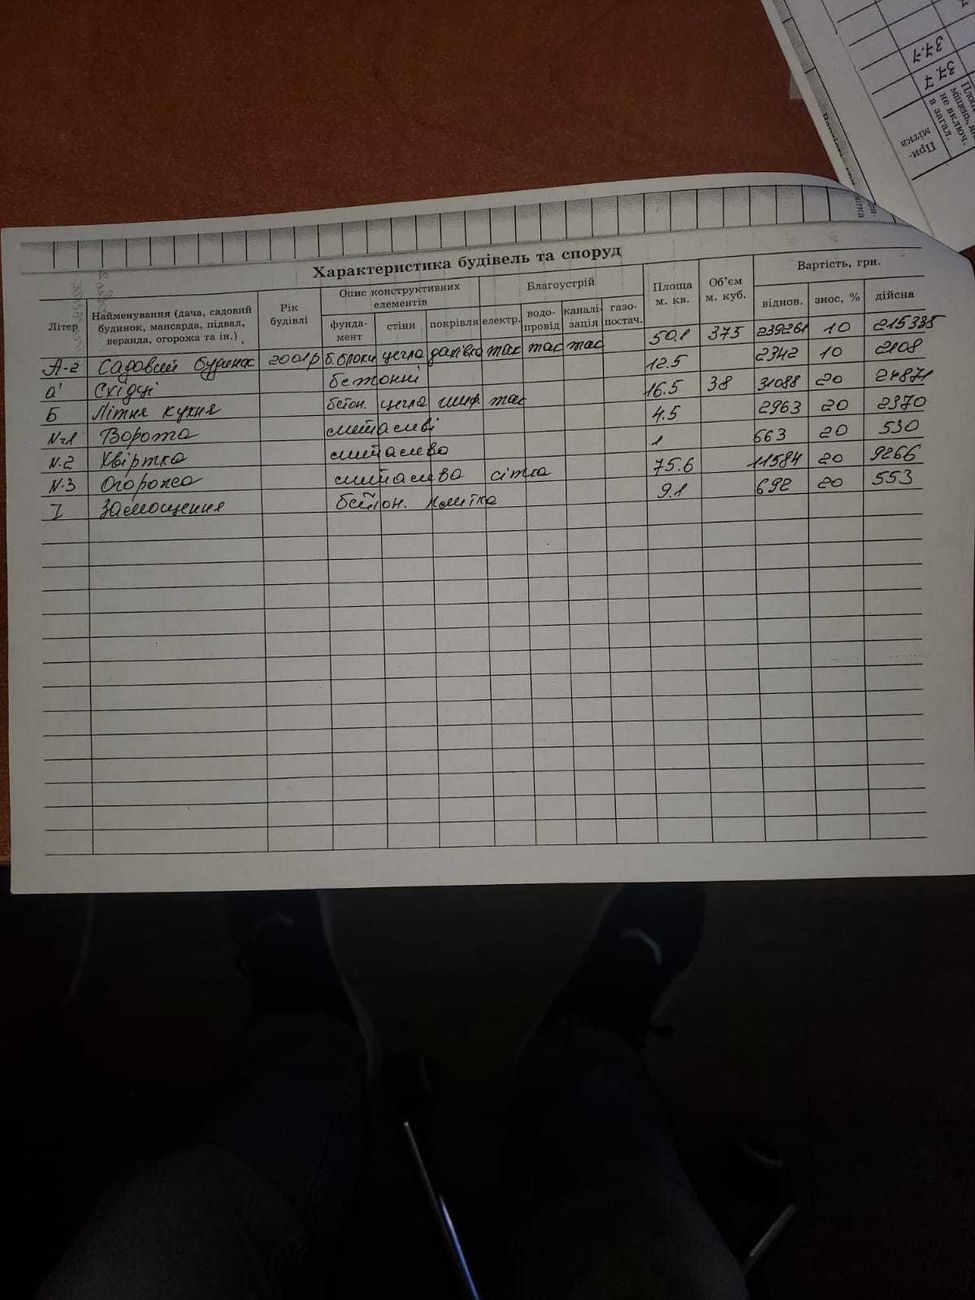 37.7
37.7
При-
мітка
міщень, що
не включ.
в загал.
Характеристика будівель та споруд
Літер
Найменування (дача, садовий
будинок, мансарда, підвал,
веранда, огорожа та ін.)
Рік
будівлі
Опис конструктивних
елементів
фунда-
мент
стіни
покрівля
Благоустрій
електр.
водо-
провід
каналі-
зація
газо-
постач.
Площа
м. кв.
Об'єм
м. куб.
Вартість, грн.
віднов.
знос, %
дійсна
А-2 Садовий будинок 2001р б.блоки цегла дахівка так так так 50.1 373 239261 10 215335
а' Східці бетонні 12.5 2342 10 2108
Б Літня кухня бетон. цегла шиф. так 16.5 38 31088 20 24871
N-1 Ворота металеві 4.5 2963 20 2370
N.2 Хвіртка металева 1 663 20 530
N.3 Огорожа металева сітка 75.6 11584 20 9266
I Замощення бетон. плитка 9.1 692 20 553